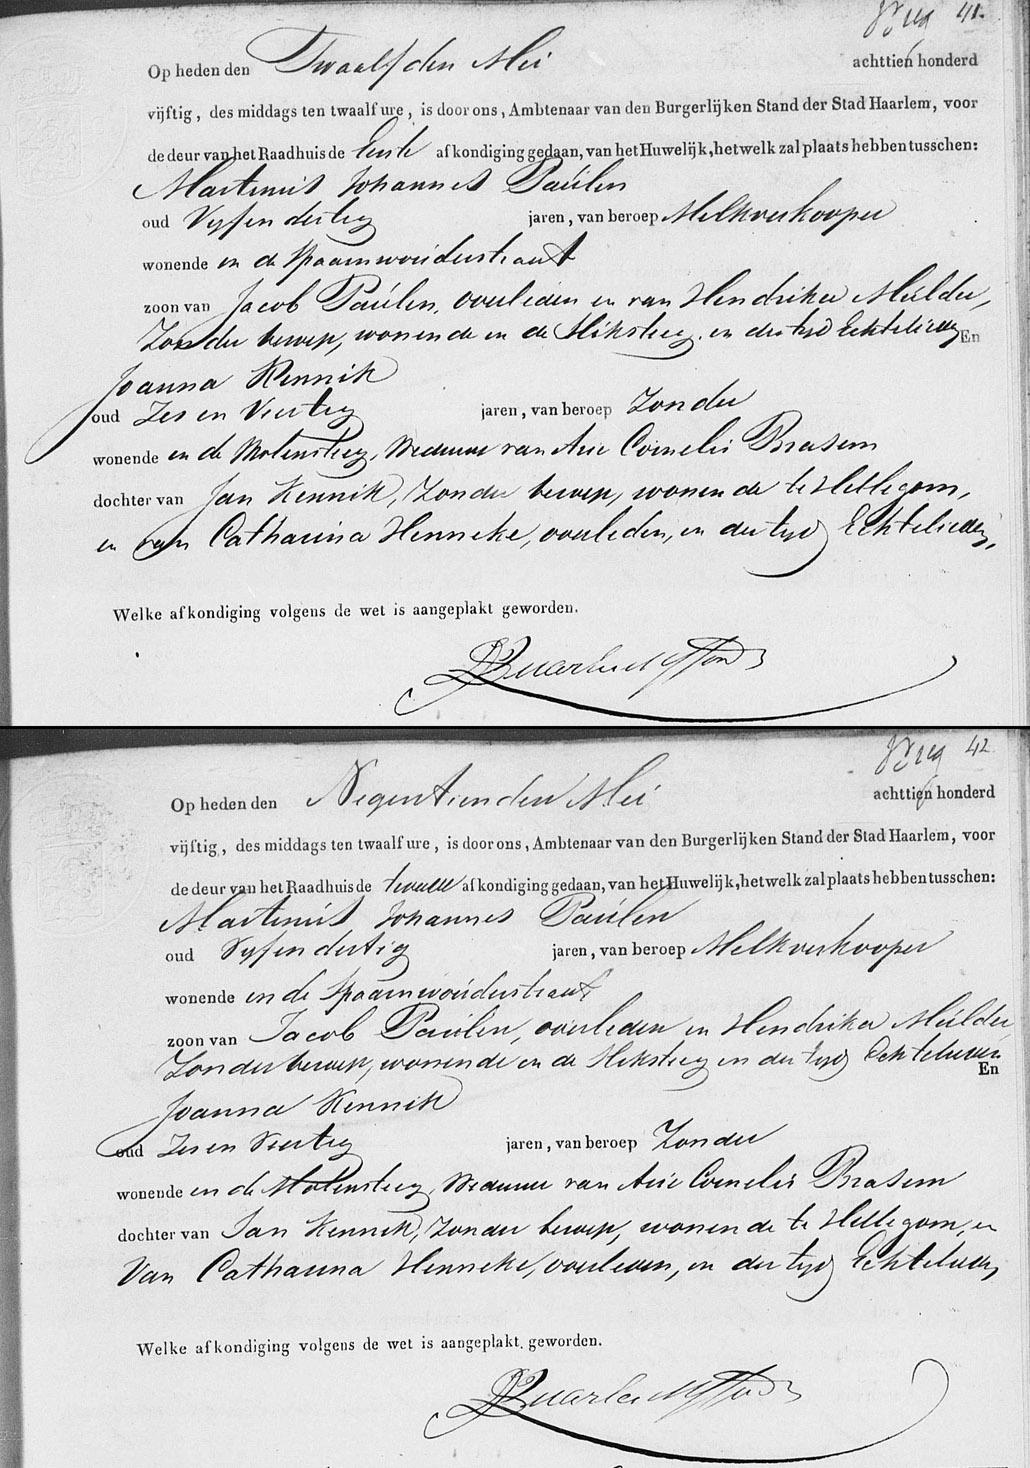 41.
Op heden den Twaalfden Mei achttien honderd
vijftig, des middags ten twaalf ure, is door ons, Ambtenaar van den Burgerlijken Stand der Stad Haarlem, voor
de deur van het Raadhuis de Eerste afkondiging gedaan, van het Huwelijk, hetwelk zal plaats hebben tusschen:
Martinus Johannes Paúlen
oud Vijfendertig jaren, van beroep Melkverkooper
wonende in de Spaarnwouderstraat
zoon van Jacob Paúlen, overleden en van Hendrika Mulder,
Zonder beroep, wonende in de Hiksteeg, in der tyd Echtelieden En
Joanna Kennik
oud Zes en Veertig jaren, van beroep Zonder
wonende in de Molensteeg, Weduwe van Arie Cornelis Brasem
dochter van Jan Kennik, Zonder beroep, wonende te Hillegom,
en van Catharina Henneke, overleden, in der tyd Echtelieden,
Welke afkondiging volgens de wet is aangeplakt geworden.
42
Op heden den Negentienden Mei achttien honderd
vijftig, des middags ten twaalf ure, is door ons, Ambtenaar van den Burgerlijken Stand der Stad Haarlem, voor
de deur van het Raadhuis de tweede afkondiging gedaan, van het Huwelijk, hetwelk zal plaats hebben tusschen:
Martinus Johannes Paúlen
oud Vyfendertig jaren, van beroep Melkverkooper
wonende in de Spaarnwouderstraat
zoon van Jacob Paúlen, overleden en Hendrika Mulder
Zonder beroep, wonende in de Hiksteeg in der tyd Echtelieden
En
Joanna Kennik
oud Zes en Veertig jaren, van beroep Zonder
wonende in de Molensteeg, Weduwe van Arie Cornelis Brasem
dochter van Jan Kennik, Zonder beroep, wonende te Hillegom, en
Van Catharina Henneke, overleden, in der tyd Echtelieden,
Welke afkondiging volgens de wet is aangeplakt geworden.